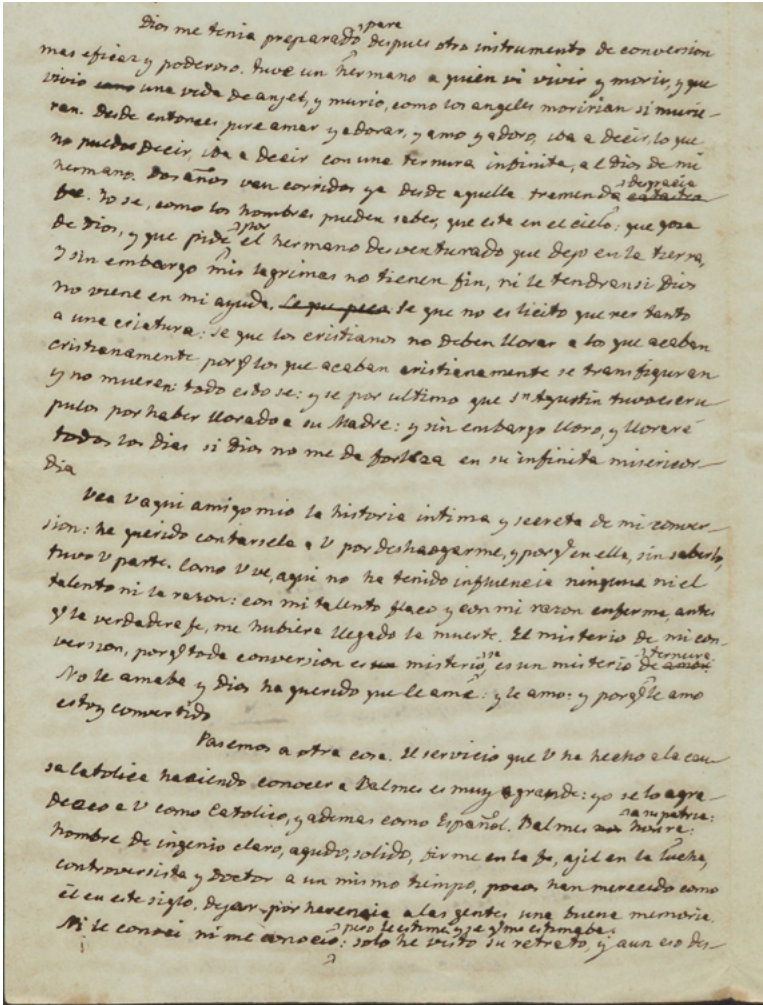 Dios me tenia preparado para despues otro instrumento de conversion
mas eficaz y poderoso. Tuve un hermano a quien vi vivir y morir, y que
vivio una vida de anjel, y murio, como los angeles moririan si murie-
ran. Desde entonces jure amar y adorar, y amo y adoro, iba a decir, lo que
no puedo decir, iba a decir con una ternura infinita, al Dios de mi
hermano. Dos años van corridos ya desde aquella tremenda desgracia
catastro-
fe. Yo se, como los hombres pueden saber, que esta en el cielo: que goza
de Dios, y que pide por el hermano desventurado que dejo en la tierra,
Y sin embargo mis lagrimas no tienen fin, ni le tendran si Dios
no viene en mi ayuda. Se que no es licito querer tanto
a una criatura: se que los cristianos no deben llorar a los que acaban
cristianamente porq̃ los que acaban cristianamente se transfiguran
y no mueren: todo esto se: y se por ultimo que Sn Agustin tuvo escru-
pulos por haber llorado a su Madre: y sin embargo lloro, y lloraré
todos los dias si Dios no me da fortleza en su infinita misericor-
dia
Vea V aqui amigo mio la historia intima y secreta de mi conver-
sion: he querido contarsela a V por deshaogarme, y porq̃ en ella, sin saberlo,
tuvo V parte. Como V ve, aqui no ha tenido influencia ninguna ni el
talento ni la razon: con mi talento flaco y con mi razon enferma, antes
q̃ la verdadera fe, me hubiera llegado la muerte. El misterio de mi con-
version, porq̃ toda conversion es misterio, es un misterio de ternura
amor.
No le amaba y Dios ha querido que le ame: y le amo: y porq̃ le amo
estoy convertido
Pasemos a otra cosa. El servicio que V ha hecho a la cau-
sa Catolica haciendo conocer a Balmes es muy grande: yo se lo agra-
dezco a V como Catolico, y ademas como Español. Balmes honra a su patria:
hombre de ingenio claro, agudo, solido, firme en la fe, ajil en la lucha,
controversista y doctor a un mismo tiempo, pocos han merecido como
él en este siglo, dejar por herencia a las gentes una buena memoria.
Ni le conoci ni me conocio: pero le estimé y se q̃ me estimaba:
solo he visto su retrato, y aun eso des-